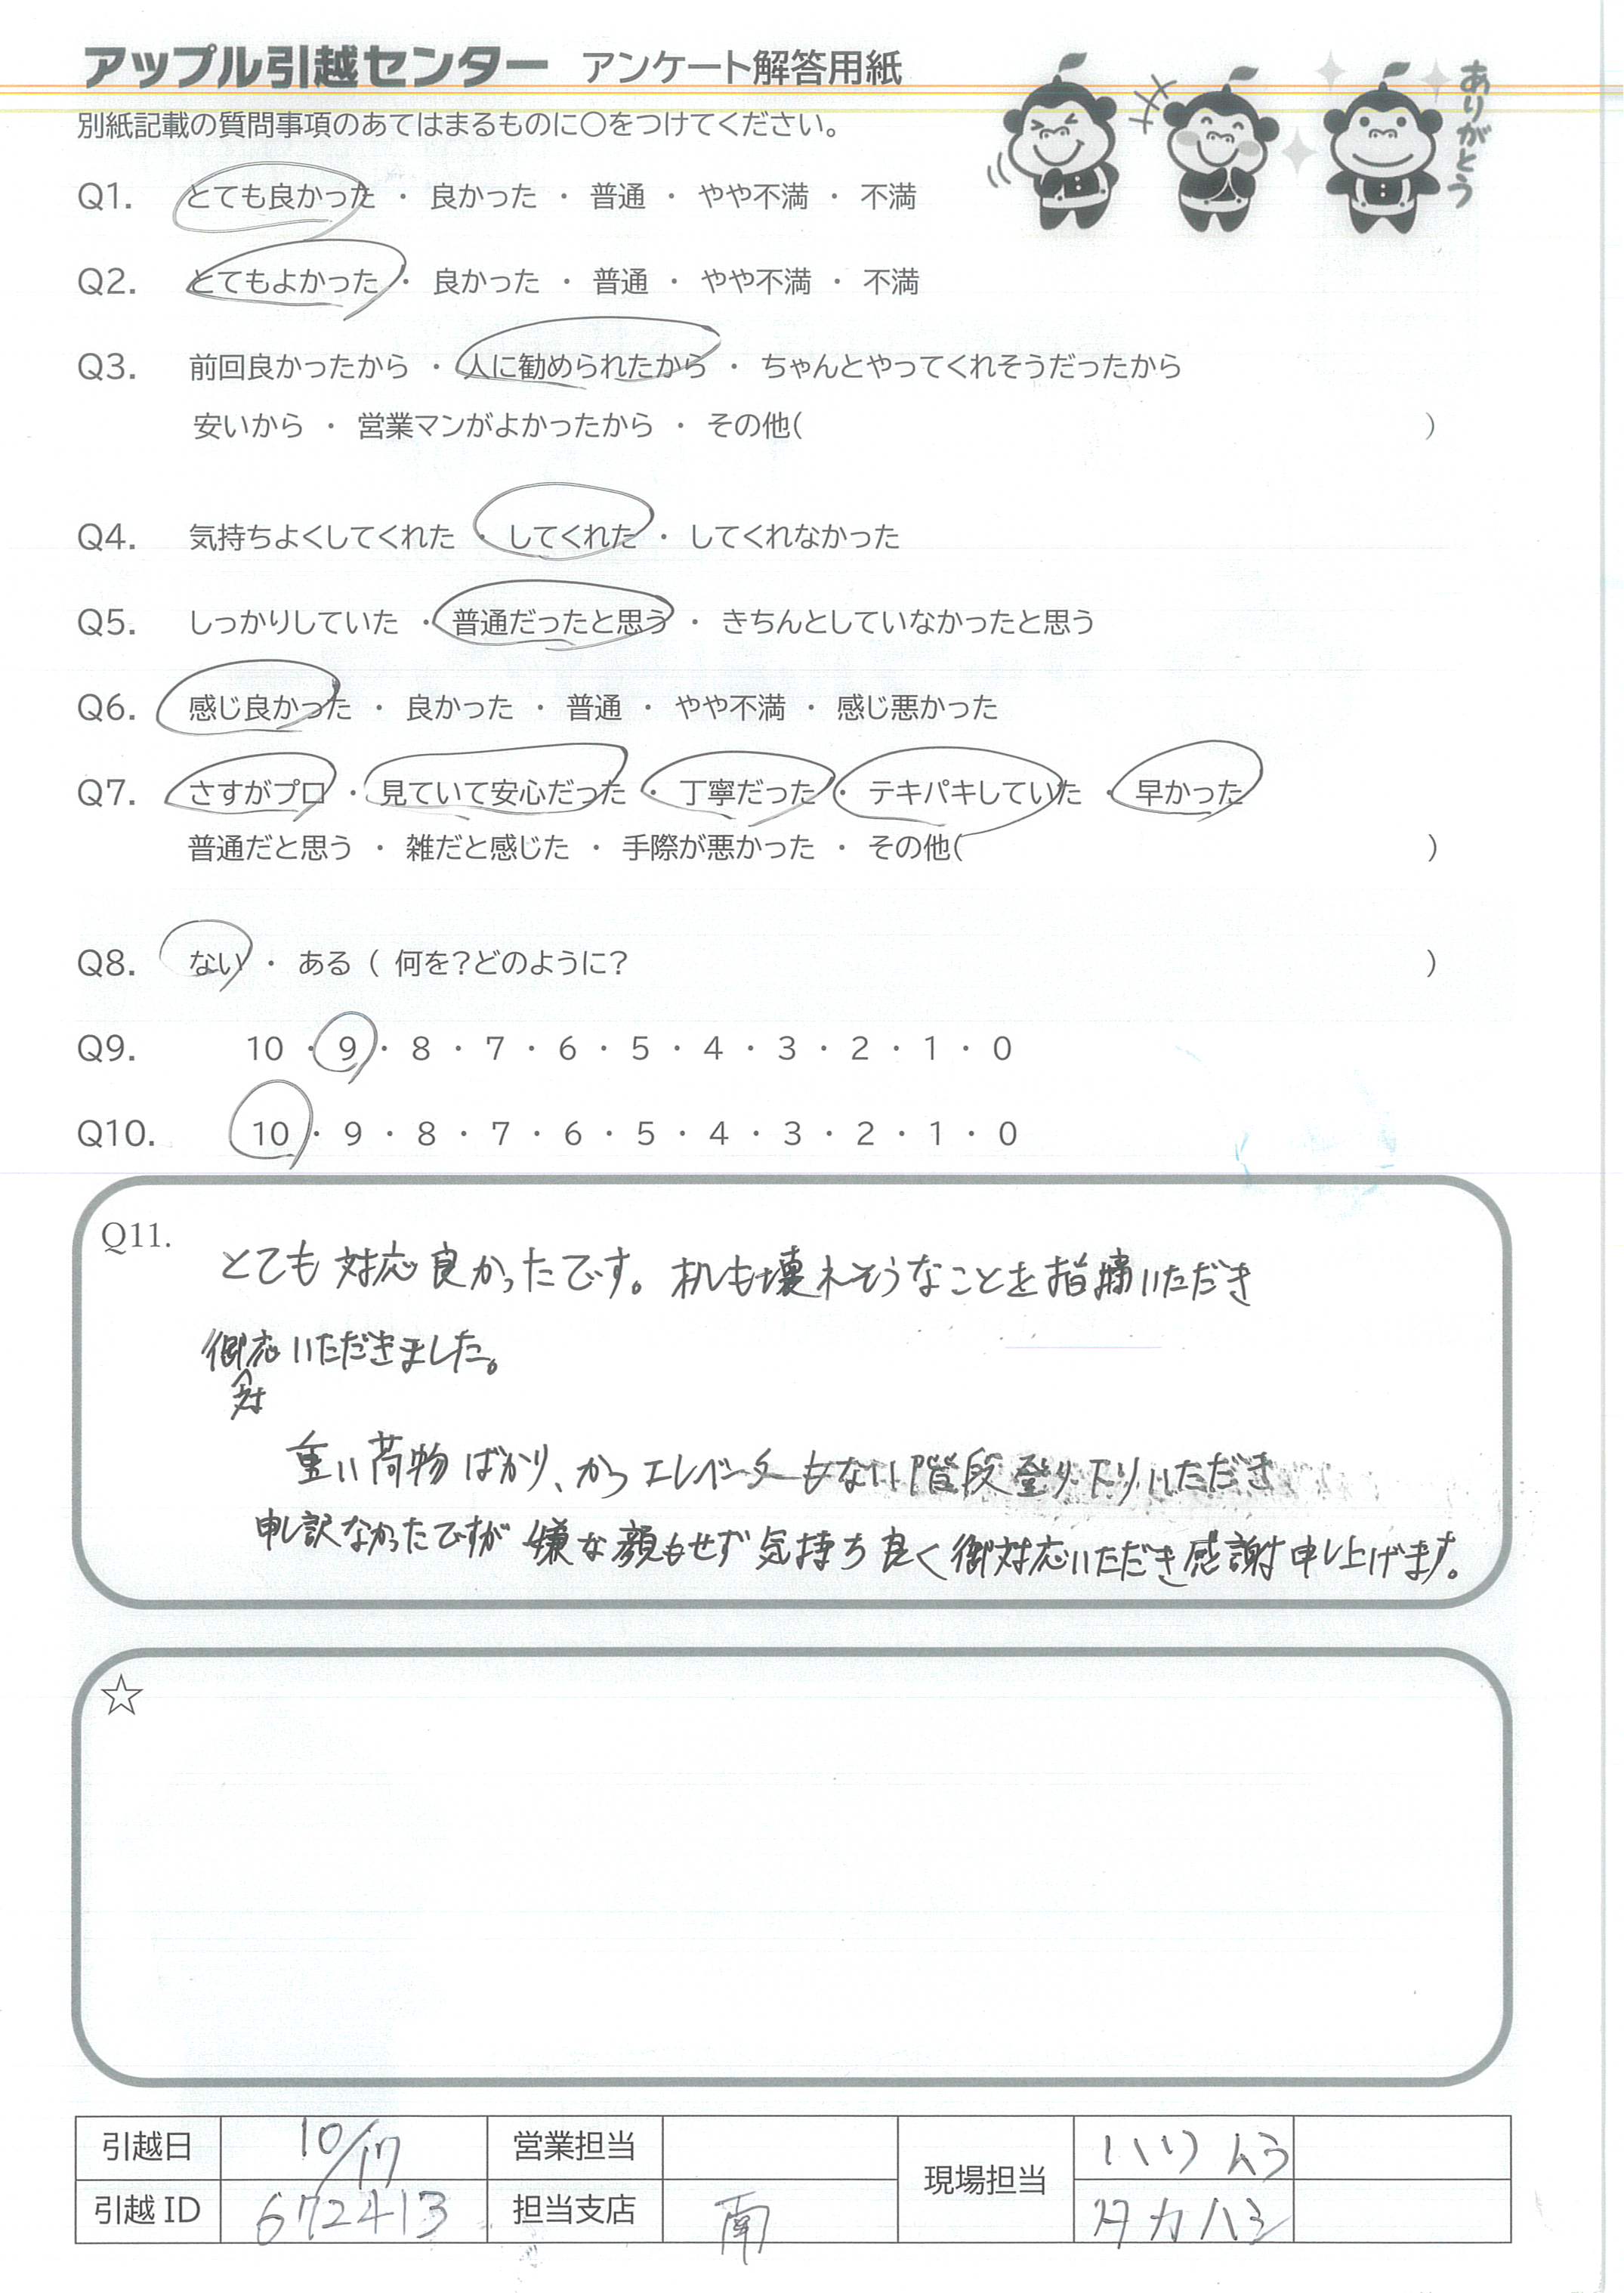 アップル引越センター アンケート解答用紙
ありがとう
別紙記載の質問事項のあてはまるものに○をつけてください。
Q1. とても良かった ・ 良かった ・ 普通 ・ やや不満 ・ 不満
Q2. とてもよかった ・ 良かった ・ 普通 ・ やや不満 ・ 不満
Q3. 前回良かったから ・ 人に勧められたから ・ ちゃんとやってくれそうだったから
安いから ・ 営業マンがよかったから ・ その他( )
Q4. 気持ちよくしてくれた ・ してくれた ・ してくれなかった
Q5. しっかりしていた ・ 普通だったと思う ・ きちんとしていなかったと思う
Q6. 感じ良かった ・ 良かった ・ 普通 ・ やや不満 ・ 感じ悪かった
Q7. さすがプロ ・ 見ていて安心だった ・ 丁寧だった ・ テキパキしていた ・ 早かった
普通だと思う ・ 雑だと感じた ・ 手際が悪かった ・ その他( )
Q8. ない ・ ある ( 何を?どのように? )
Q9. 10 ・ 9 ・ 8 ・ 7 ・ 6 ・ 5 ・ 4 ・ 3 ・ 2 ・ 1 ・ 0
Q10. 10 ・ 9 ・ 8 ・ 7 ・ 6 ・ 5 ・ 4 ・ 3 ・ 2 ・ 1 ・ 0
Q11. とても対応良かったです。机も壊れそうなことを指摘いただき
御応いただきました。
対
重い荷物ばかり、かつエレベーターもない階段登り下りいただき
申し訳なかったですが嫌な顔もせず気持ち良く御対応いただき感謝申し上げます。
☆
引越日 10/17 営業担当 現場担当
引越ID 672413 担当支店 南 タカハシ